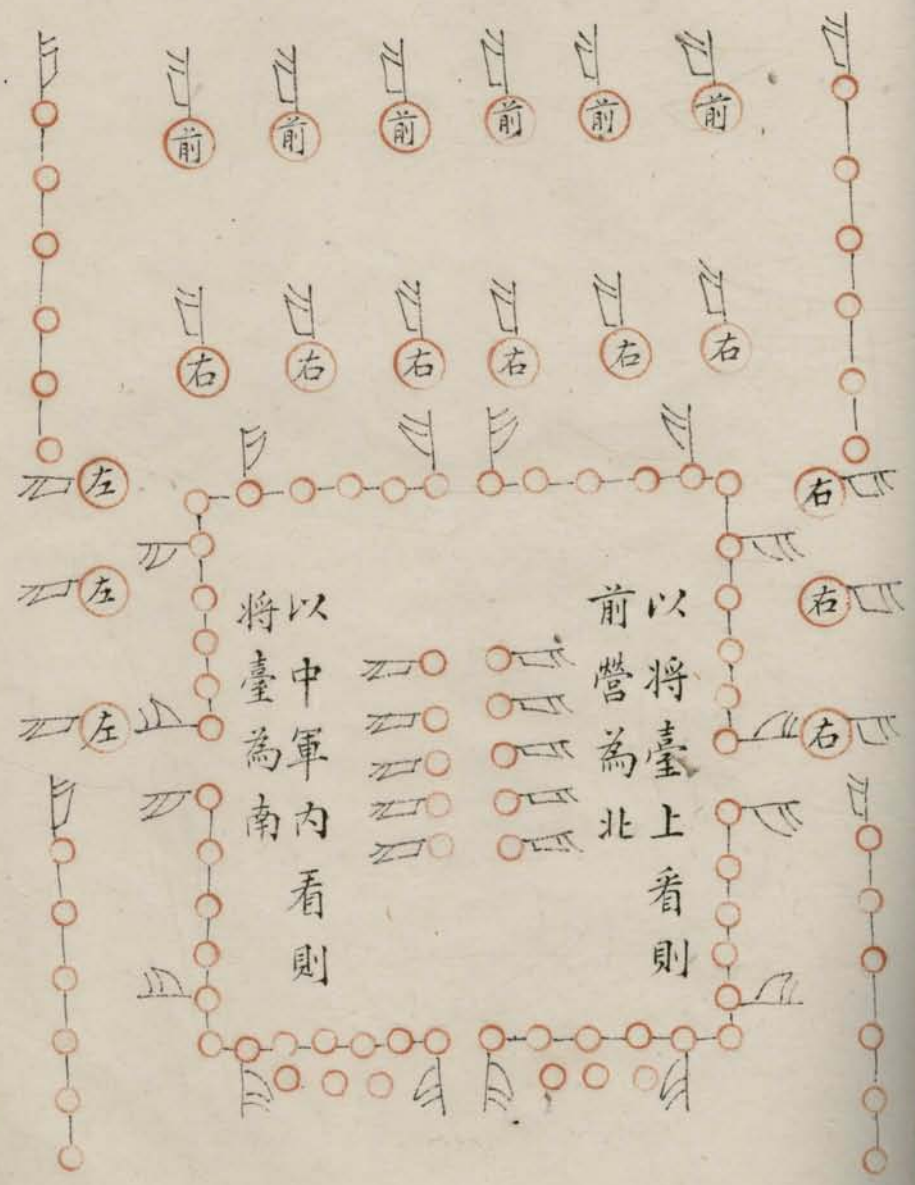 前 前 前 前 前 前
右 右 右 右 右 右
右 左
右 左
右 左
以將臺上看則
前營為北
以中軍內看則
將臺為南